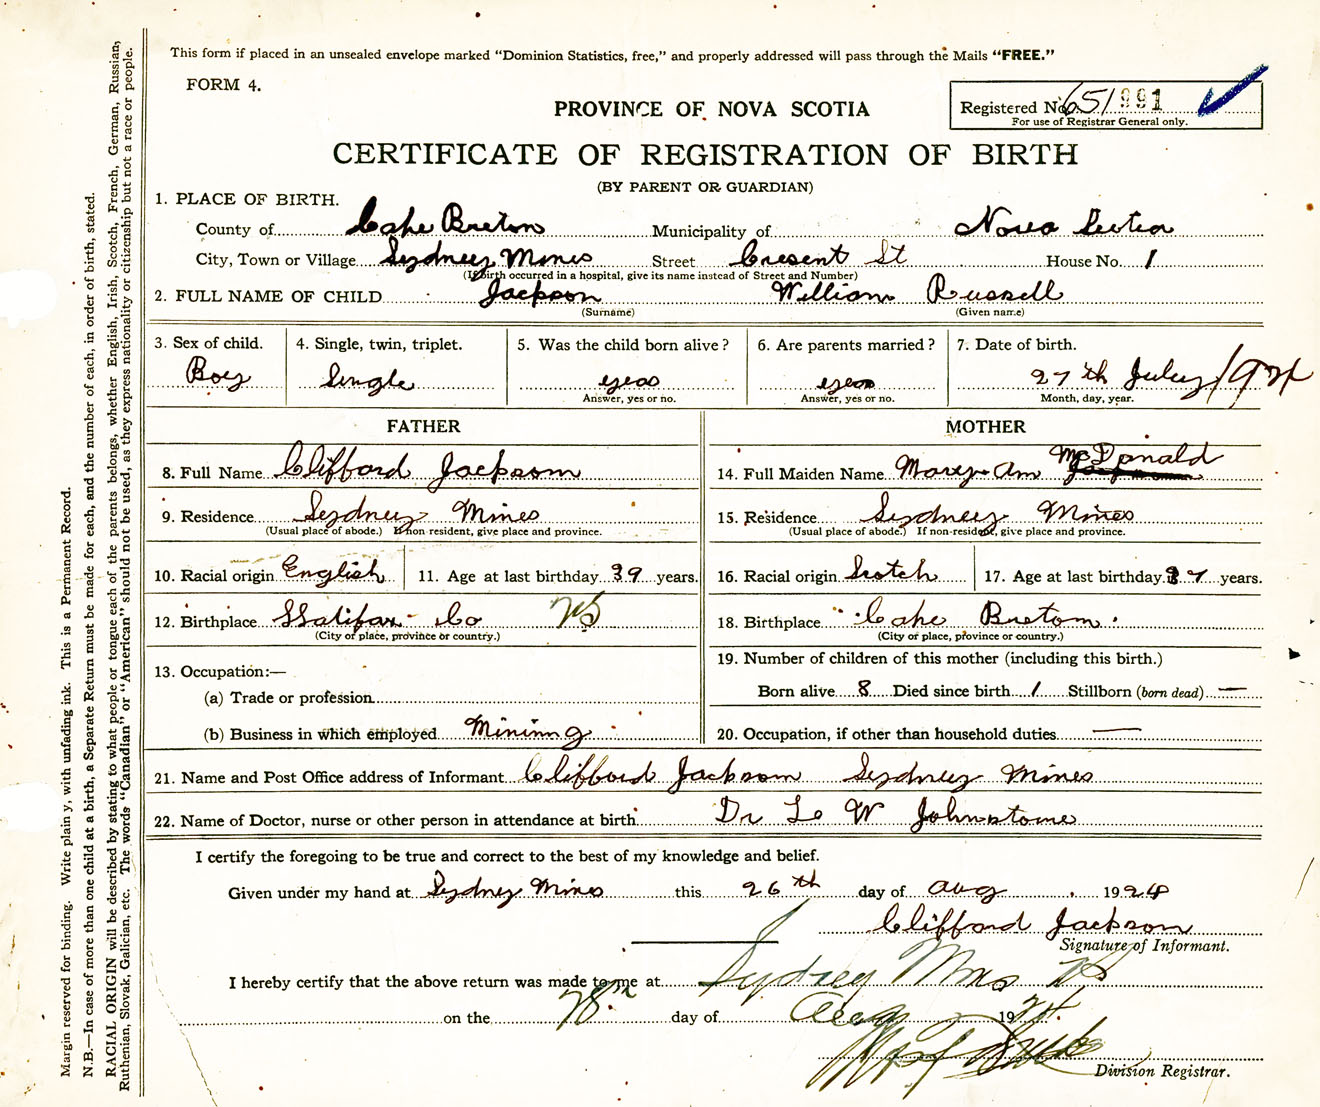 This form if placed in an unsealed envelope marked "Dominion Statistics, free," and properly addressed will pass through the Mails "FREE."
FORM 4.
PROVINCE OF NOVA SCOTIA
Registered No. 651991
For use of Registrar General only.
CERTIFICATE OF REGISTRATION OF BIRTH
(BY PARENT OR GUARDIAN)
1. PLACE OF BIRTH.
County of Cape Breton Municipality of Nova Scotia
City, Town or Village Sydney Mines Street Cresent St House No. 1
(If birth occurred in a hospital, give its name instead of Street and Number)
2. FULL NAME OF CHILD Jackson William Russell
(Surname) (Given name)
3. Sex of child. 4. Single, twin, triplet. 5. Was the child born alive? 6. Are parents married? 7. Date of birth.
Boy Single yeas yeas 27 th July/1924
Answer, yes or no. Answer, yes or no. Month, day, year.
FATHER MOTHER
8. Full Name Clifford Jackson 14. Full Maiden Name Mary Ann McDonald
9. Residence Sydney Mines 15. Residence Sydney Mines
(Usual place of abode.) If non-resident, give place and province. (Usual place of abode.) If non-resident, give place and province.
10. Racial origin English 11. Age at last birthday 39 years. 16. Racial origin Scotch 17. Age at last birthday 37 years.
12. Birthplace Halifax Co NS 18. Birthplace Cape Breton.
(City or place, province or country.) (City or place, province or country.)
13. Occupation:— 19. Number of children of this mother (including this birth.)
(a) Trade or profession Born alive 8 Died since birth 1 Stillborn (born dead) —
(b) Business in which employed Mininng 20. Occupation, if other than household duties —
21. Name and Post Office address of Informant Clifford Jackson Sydney Mines
22. Name of Doctor, nurse or other person in attendance at birth Dr L W Johnstone
I certify the foregoing to be true and correct to the best of my knowledge and belief.
Given under my hand at Sydney Mines this 26 th day of Aug 1924
Clifford Jackson
Signature of Informant.
I hereby certify that the above return was made to me at Sydney Mines NS
on the 28th day of Aug 1924.
Division Registrar.
Margin reserved for binding. Write plainly, with unfading ink. This is a Permanent Record.
N.B.—In case of more than one child at a birth, a Separate Return must be made for each, and the number of each, in order of birth, stated.
RACIAL ORIGIN will be described by stating to what people or tongue each of the parents belongs, whether English, Irish, Scotch, French, German, Russian,
Ruthenian, Slovak, Galician, etc. The words "Canadian" or "American" should not be used, as they express nationality or citizenship but not a race or people.